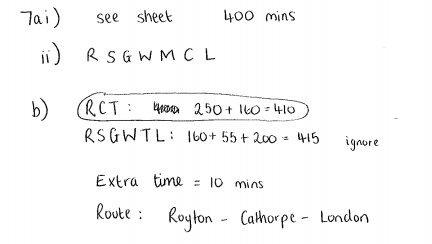 7ai) see sheet 400 mins
ii) R S G W M C L
b) RCT: 250 + 160 = 410
RSGWTL: 160 + 55 + 200 = 415 ignore
Extra time = 10 mins
Route: Royton - Cathorpe - London